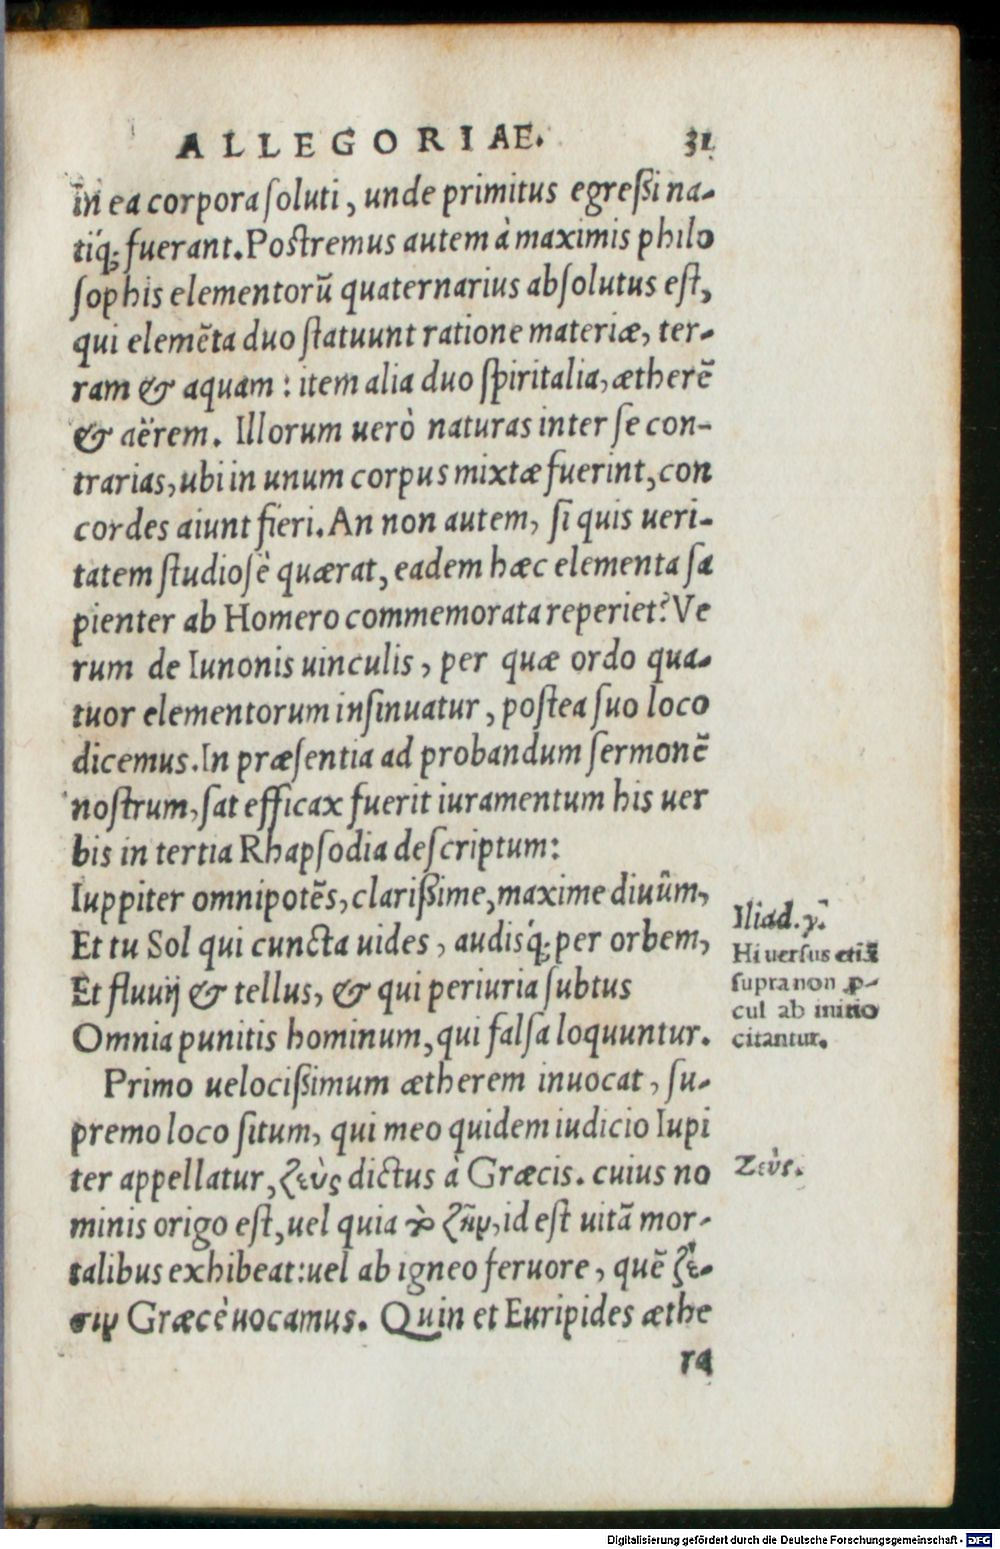 ALLEGORIAE. 31
in ea corpora ſoluti, unde primitus egreßi na-
tiq́; fuerant. Postremus autem à maximis philo
ſophis elementorũ quaternarius abſolutus eſt,
qui elemẽta duo ſtatuunt ratione materiæ, ter-
ram & aquam: item alia duo ſpiritalia, ætherẽ
& aërem. Illorum uerò naturas inter ſe con-
trarias, ubi in unum corpus mixtæ fuerint, con
cordes aiunt fieri. An non autem, ſi quis ueri-
tatem ſtudioſè quærat, eadem hæc elementa ſa
pienter ab Homero commemorata reperiet? Ve
rum de Iunonis uinculis, per quæ ordo qua-
tuor elementorum inſinuatur, poſtea ſuo loco
dicemus. In præſentia ad probandum ſermonẽ
noſtrum, ſat efficax fuerit iuramentum his uer
bis in tertia Rhapſodia deſcriptum:
Iuppiter omnipotẽs, clarißime, maxime diuûm,
Et tu Sol qui cuncta uides, audisq́; per orbem,
Et fluuij & tellus, & qui periuria ſubtus
Omnia punitis hominum, qui falſa loquuntur.
Iliad. γ.
Hi uersus etiã
ſupra non ꝓ-
cul ab initio
citantur.
Primo uelocißimum ætherem inuocat, ſu-
premo loco ſitum, qui meo quidem iudicio Iupi
ter appellatur, ζεὺς dictus à Græcis. cuius no
Ζεύς.
minis origo eſt, uel quia τὸ ζῆν, id eſt uitã mor-
talibus exhibeat: uel ab igneo feruore, quẽ ζέ-
σιν Græcè uocamus. Quin et Euripides æthe
ra
Digitalisierung gefördert durch die Deutsche Forschungsgemeinschaft - DFG